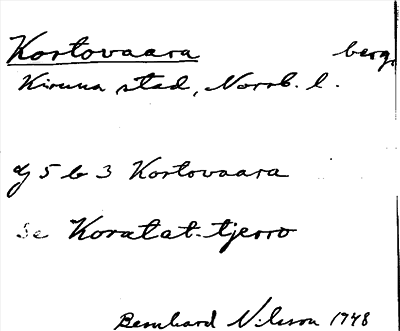 Kortovaara berg
Kiruna stad, Norrb. l.
5 b 3 Kortovaara
Se Koratat-tjorro
Bernhard Nilsson 1948